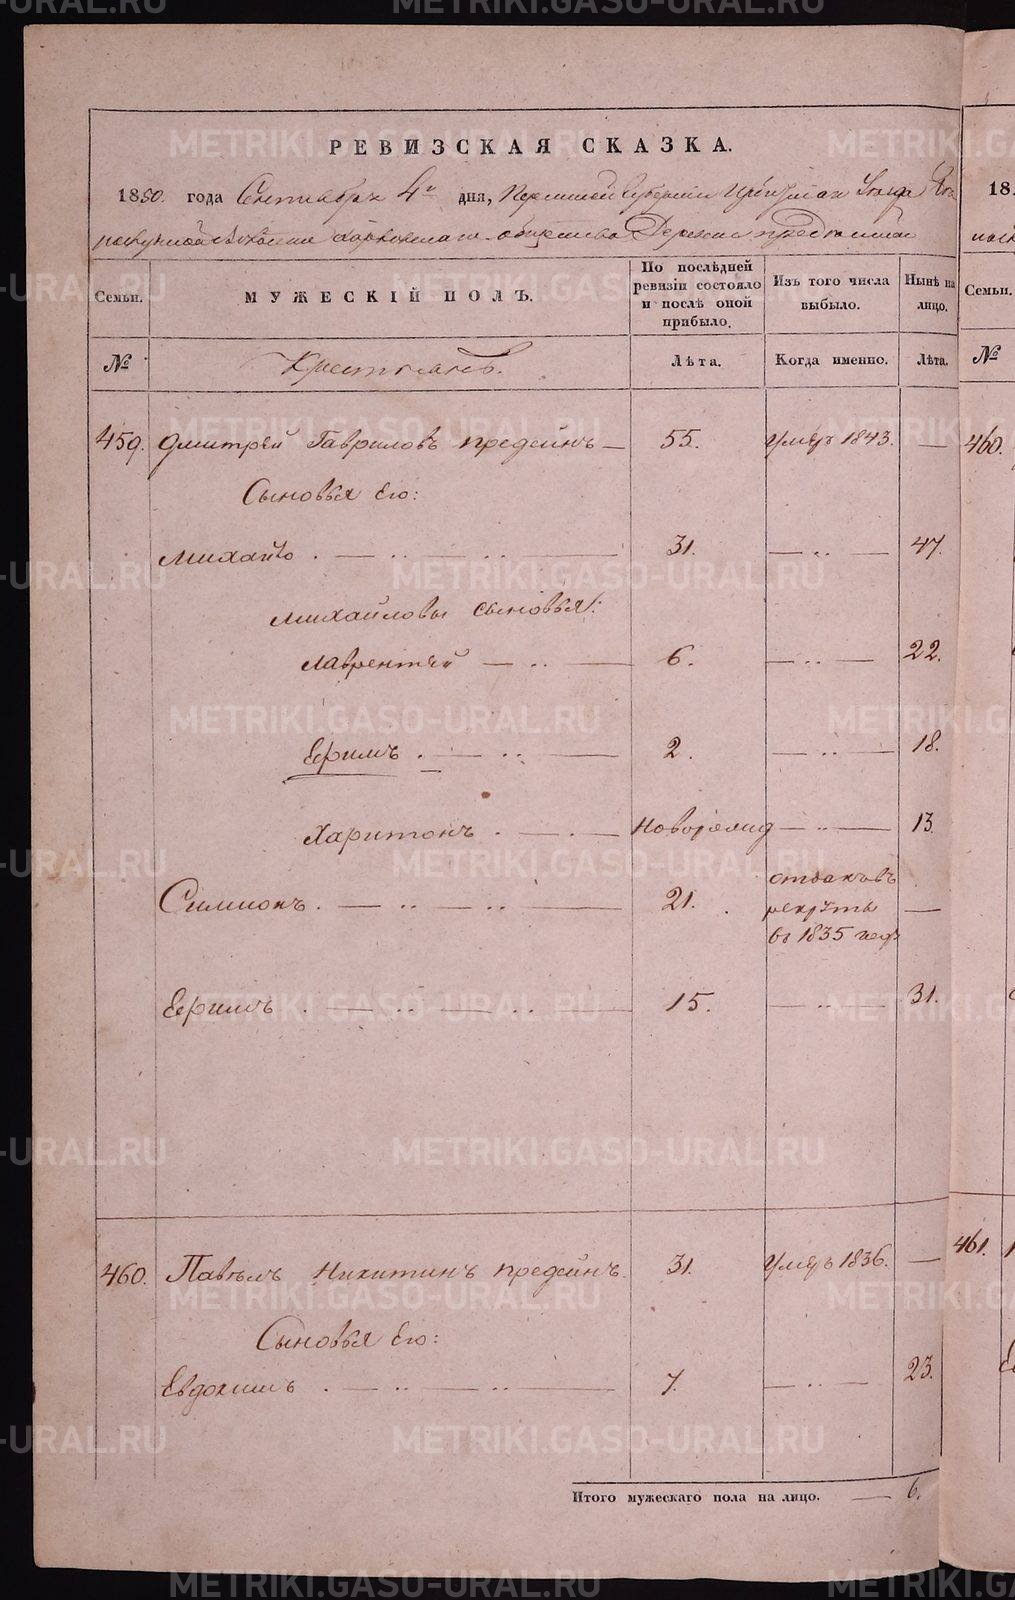 РЕВИЗСКАЯ СКАЗКА.
1850. года Сентября 4го дня, Пермской Губернии Ирбитскаго Уезда
общества Деревни
Семьи.
МУЖЕСКІЙ ПОЛЪ.
По послѣдней ревизіи состояло и послѣ оной прибыло.
Изъ того числа выбыло.
Нынѣ на лицо.
№ Крестьянъ. Лѣта. Когда именно. Лѣта.
459. Дмитрей Гавриловъ Предеинъ — 55. умеръ 1843. —
Сыновья Его:
Михайло . — .. — .. — 31. — .. — 47.
Михайловы сыновья:
Лаврентей — .. — 6. — .. — 22.
Ефимъ . — .. — 2. — .. — 18.
Харитонъ . — . — Новорожд — .. — 13.
Симионъ . — .. — .. — 21. отданъ въ рекруты въ 1835 году —
Ефимъ . — .. — .. — 15. — .. — 31.
460. Павелъ Никитинъ Предеинъ. 31. Умеръ 1836. —
Сыновья Его:
Евдокимъ . — .. — .. — 7. — .. — 23.
Итого мужескаго пола на лицо. — 6.
18
Семьи.
№
460.
461.
METRIKI.GASO-URAL.RU